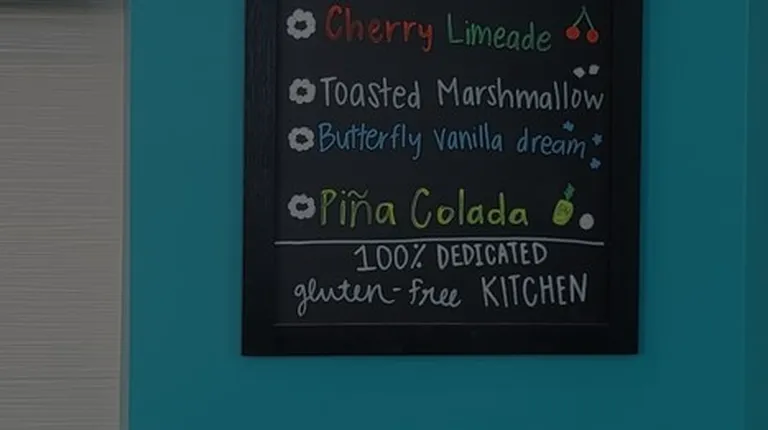 Cherry Limeade
Toasted Marshmallow
Butterfly Vanilla dream
Piña Colada
100% DEDICATED
gluten-free KITCHEN